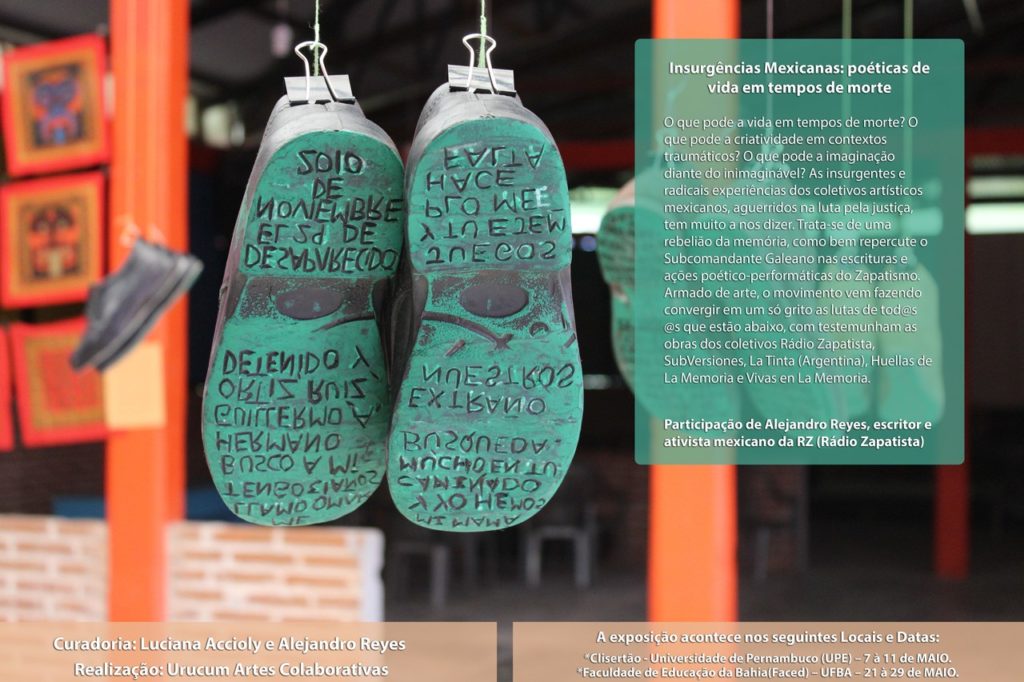 ME
LLAMO OMAR
TENGO
BUSCO A MI
HERMANO
GUILLERMO A.
ORTIZ RUIZ
DETENIDO Y
DESAPARECIDO
EL DE
NOVIEMBRE
DE
2010
MI MAMA
Y YO HEMOS
CAMINADO
MUCHO EN TU
BUSQUEDA.
EXTRANO
NUESTROS
JUEGOS
Y TU EJEM
PLO ME
HACE
FALTA
Insurgências Mexicanas: poéticas de
vida em tempos de morte
O que pode a vida em tempos de morte? O
que pode a criatividade em contextos
traumáticos? O que pode a imaginação
diante do inimaginável? As insurgentes e
radicais experiências dos coletivos artísticos
mexicanos, aguerridos na luta pela justiça,
tem muito a nos dizer. Trata-se de uma
rebelião da memória, como bem repercute o
Subcomandante Galeano nas escrituras e
ações poético-performáticas do Zapatismo.
Armado de arte, o movimento vem fazendo
convergir em um só grito as lutas de tod@s
@s que estão abaixo, com testemunham as
obras dos coletivos Rádio Zapatista,
SubVersiones, La Tinta (Argentina), Huellas de
La Memoria e Vivas en La Memoria.
Participação de Alejandro Reyes, escritor e
ativista mexicano da RZ (Rádio Zapatista)
Curadoria: Luciana Accioly e Alejandro Reyes
Realização: Urucum Artes Colaborativas
A exposição acontece nos seguintes Locais e Datas:
*Clisertão - Universidade de Pernambuco (UPE) – 7 à 11 de MAIO.
*Faculdade de Educação da Bahia(Faced) – UFBA – 21 à 29 de MAIO.